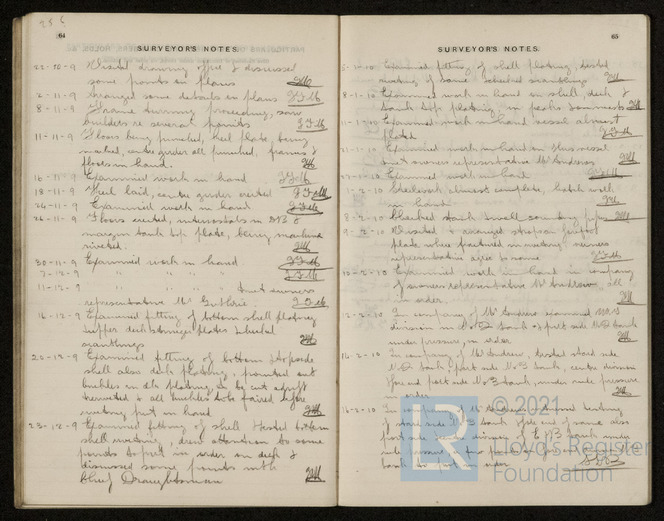 256
64
SURVEYOR'S NOTES.
22-10-9 Visited drawing office & discussed
some points on plans
2-11-9 Arranged some details on plans
8-11-9 Frame turning proceeding, saw
builders re several points
11-11-9 Floors being punched, keel plate being
marked, centre girder all punched, frames &
floors in hand.
16-11-9 Examined work in hand
18-11-9 Keel laid, centre girder erected
26-11-9 Examined work in hand
26-11-9 Floors erected, intercostals in &
margin tank top plate, being machine
riveted.
30-11-9 Examined work in hand
7-12-9 " " " "
11-12-9 " owners
representative Mr Guthrie
16-12-9 Examined fitting of bottom shell plating
upper deck stringer plates & heeled
scantlings
20-12-9 Examined fitting of bottom & topside
shell also deck plating, pointed out
buckles in dk plating, to be cut adrift
& all buckles to be faired before
riveting put in hand
23-12-9 Examined fitting of shell & tested bottom
shell riveting, drew attention to some
points to put in order on deck &
discussed some points with
Chief Draughtsman
65
SURVEYOR'S NOTES.
5-1-10 Examined fitting of shell plating, tested
riveting of same, checked scantlings
8-1-10 Examined work in hand on shell, deck &
tank top plating, in peaks
11-1-10 Examined work in hand vessel almost
plated
21-1-10 Examined work in hand on this vessel
owners representative Mr Andrews
27-1-10 Examined work in hand
1-2-10 Steelwork almost complete, hatch work
in hand.
8-2-10 Checked tank
9-2-10 Visited & arranged
plate where fractured in riveting, owners
representative agree to same
10-2-10 Examined work in hand in company
of owners representative Mr Andrew, all
in order
12-2-10 In company of Mr Andrew examined
division in tank & port side tank
under pressure, in order.
14-2-10 In company of Mr Andrew, tested stard side
No 2 tank, port side No 3 tank, centre division
& port side No 3 tank, under wide pressure
in order
16-2-10 In company of Mr testing
of stard side No 3 tank of same also
port side division of tank under
pressure
tank to put in order
© 2021
LR
Lloyd's Register
Foundation